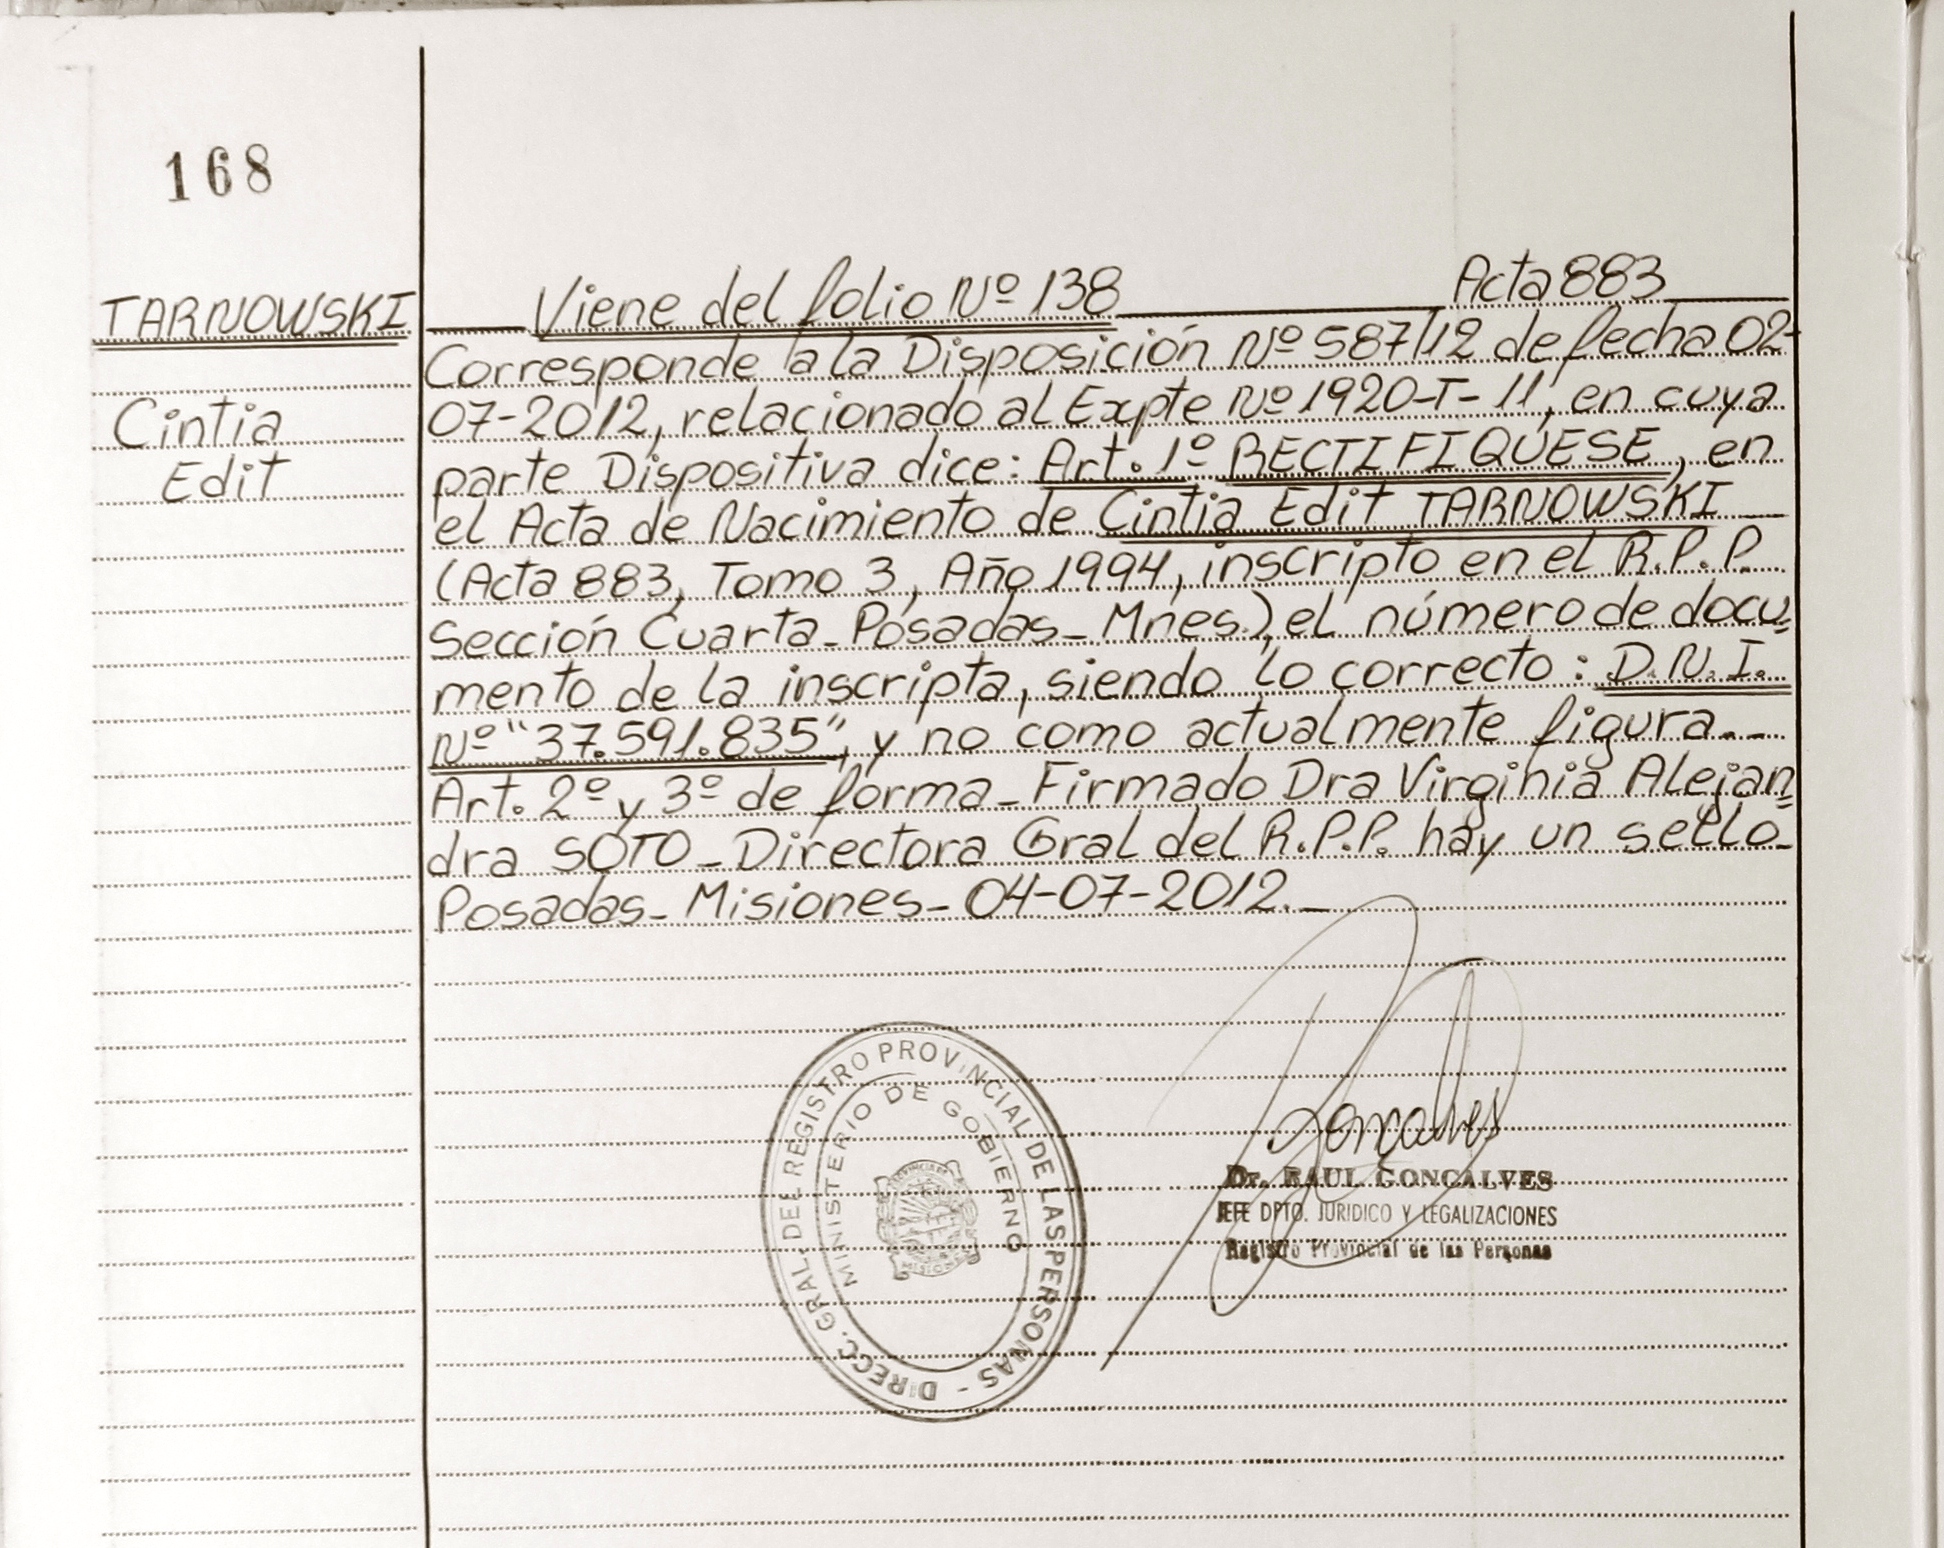 168
TARNOWSKI
Cintia
Edit
Viene del folio Nº 138 Acta 883
Corresponde a la Disposición Nº 587/12 de fecha 02-
07-2012, relacionado al Expte Nº 1920-T-11, en cuya
parte Dispositiva dice: Art. 1º RECTIFIQUESE, en
el Acta de Nacimiento de Cintia Edit TARNOWSKI
(Acta 883, Tomo 3, Año 1994, inscripto en el R.P.P.
Sección Cuarta - Posadas - Mnes.), el número de docu=
mento de la inscripta, siendo lo correcto: D.N.I.
Nº "37.591.835", y no como actualmente figura.--
Art. 2º y 3º de forma - Firmado Dra Virginia Alejan=
dra SOTO - Directora Gral del R.P.P. hay un sello-
Posadas - Misiones - 04-07-2012.-
DIRECC. GRAL. DEL REGISTRO PROVINCIAL DE LAS PERSONAS -
MINISTERIO DE GOBIERNO
PROVINCIA DE
MISIONES
Goncalves
Dr. RAUL GONCALVES
JEFE DPTO. JURIDICO Y LEGALIZACIONES
Registro Provincial de las Personas